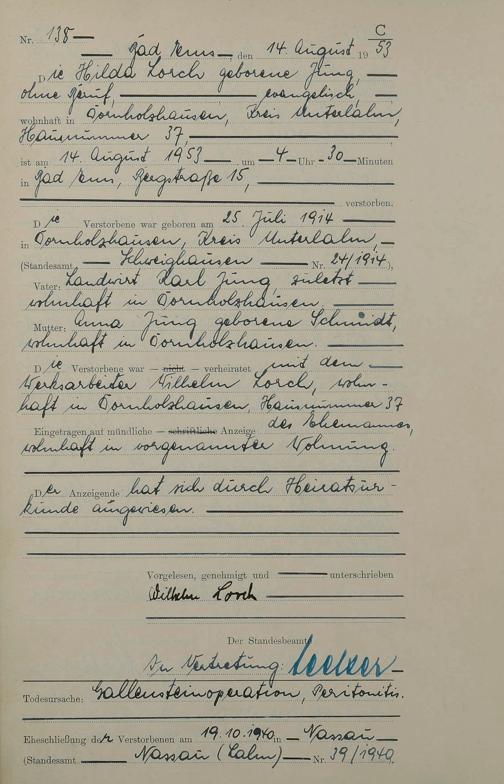 C
Nr. 138
Bad Ems, den 14. August 19 53
Die Hilda Lorch geborene Jung,
ohne Beruf, evangelisch,
wohnhaft in Dornholzhausen, Kreis Unterlahn,
Hausnummer 37,
ist am 14. August 1953 um 4 Uhr 30 Minuten
in Bad Ems, Bergstraße 15,
verstorben.
Die Verstorbene war geboren am 25. Juli 1914
in Dornholzhausen, Kreis Unterlahn,
(Standesamt Schweighausen Nr. 24/1914),
Vater: Landwirt Karl Jung, zuletzt
wohnhaft in Dornholzhausen.
Mutter: Anna Jung geborene Schmidt,
wohnhaft in Dornholzhausen.
Die Verstorbene war – nicht – verheiratet mit dem
Werksarbeiter Wilhelm Lorch, wohn-
haft in Dornholzhausen, Hausnummer 37
Eingetragen auf mündliche – schriftliche Anzeige des Ehemannes,
wohnhaft in vorgenannter Wohnung.
Der Anzeigende hat sich durch Heiratsur-
kunde ausgewiesen.
Vorgelesen, genehmigt und unterschrieben
Wilhelm Lorch
Der Standesbeamte
In Vertretung:
Todesursache: Gallensteinoperation, Peritonitis.
Eheschließung der Verstorbenen am 19.10.1940 in Nassau
(Standesamt Nassau (Lahn) Nr. 39/1940.